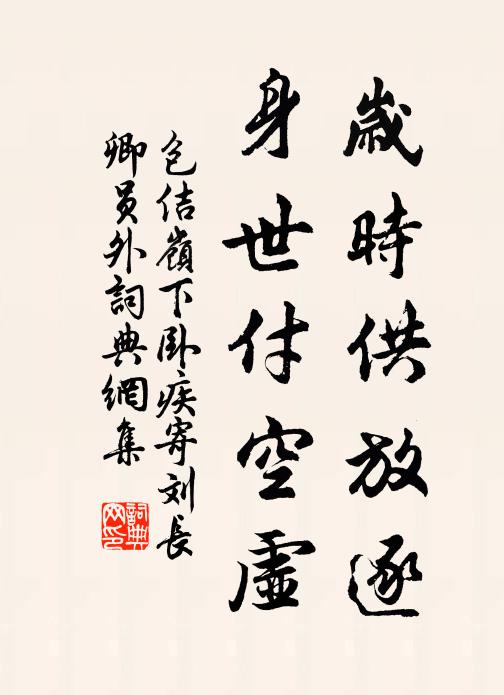 歲時供放逐
身世付空虛
包佶嶺下卧疾寄刘長
卿員外詞典網集
詞典网印